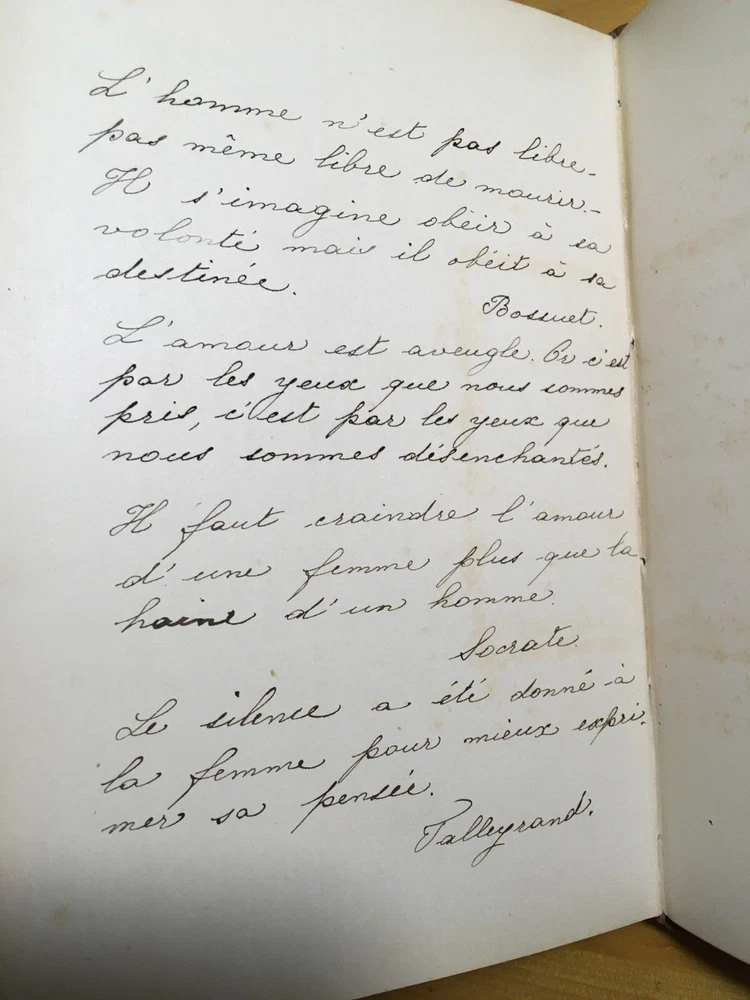 L'homme n'est pas libre_
pas même libre de mourir._
Il s'imagine obéir à sa
volonté mais il obéit à sa
destinée.
Bossuet.
L'amour est aveugle. Or c'est
par les yeux que nous sommes
pris, c'est par les yeux que
nous sommes désenchantés.
Il faut craindre l'amour
d'une femme plus que la
haine d'un homme.
Socrate.
Le silence a été donné à
la femme pour mieux expri-
mer sa pensée.
Talleyrand.